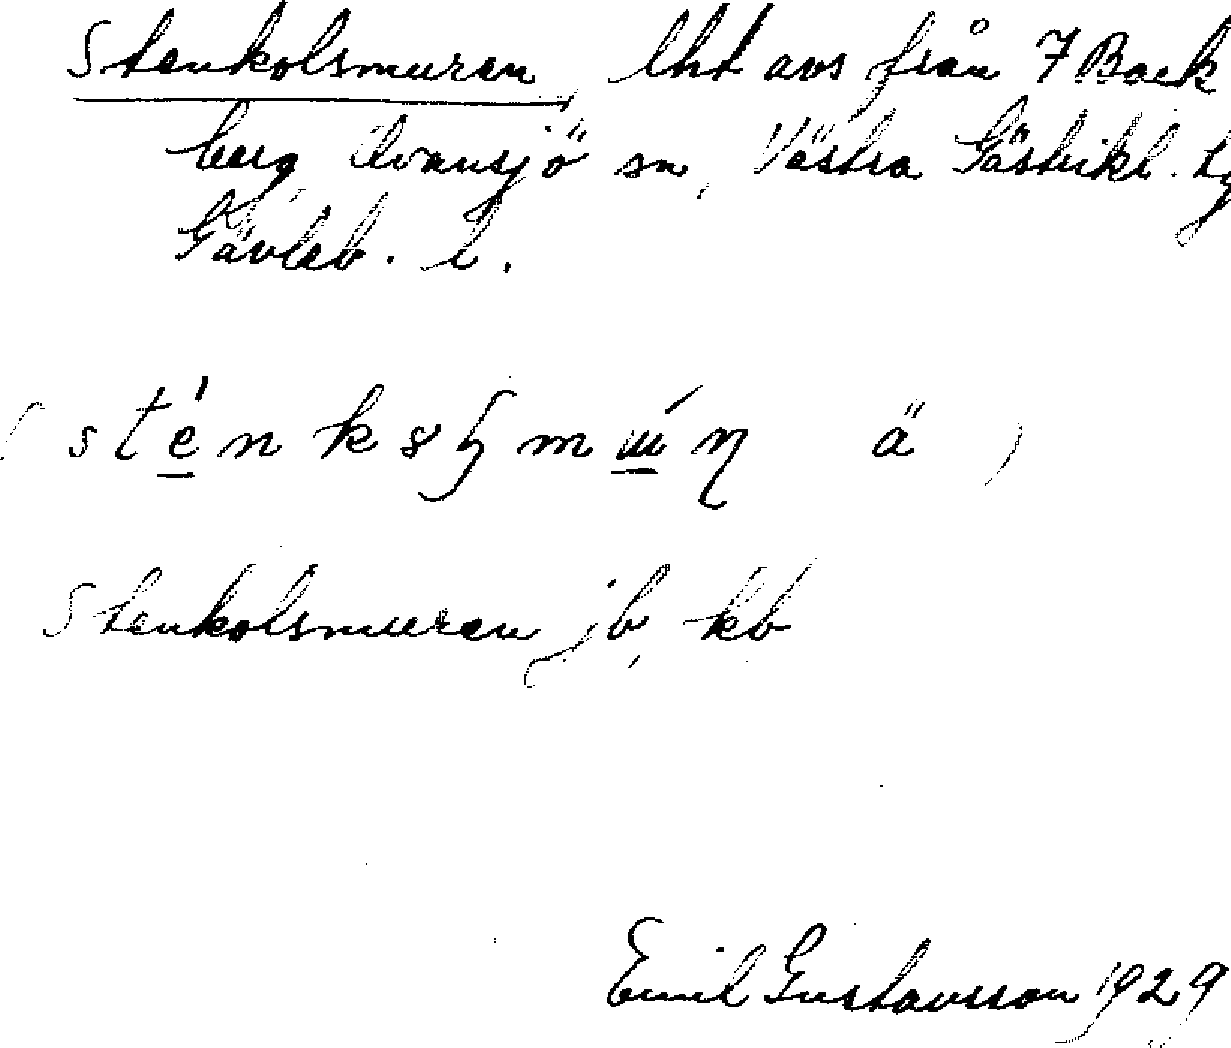 Stenkolsmuren, lht avs från 7 Back
berg, Ovansjö sn, Västra Gästrikl. tg
Gävleb. l.
ä )
Stenkolsmuren jb, kb
Emil Gustavsson 1929